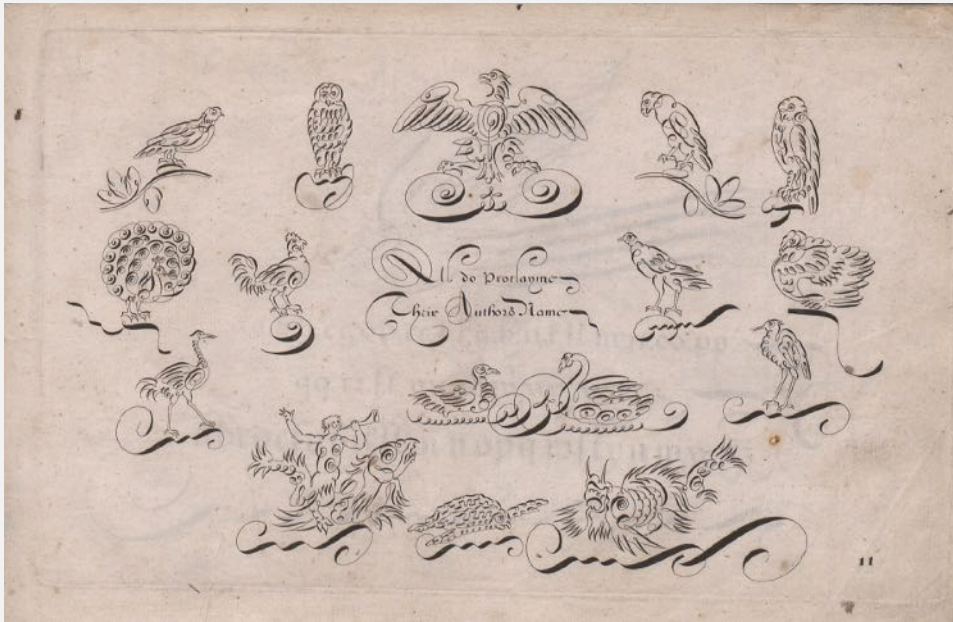 All do Proclayme
Their Authors Name
11